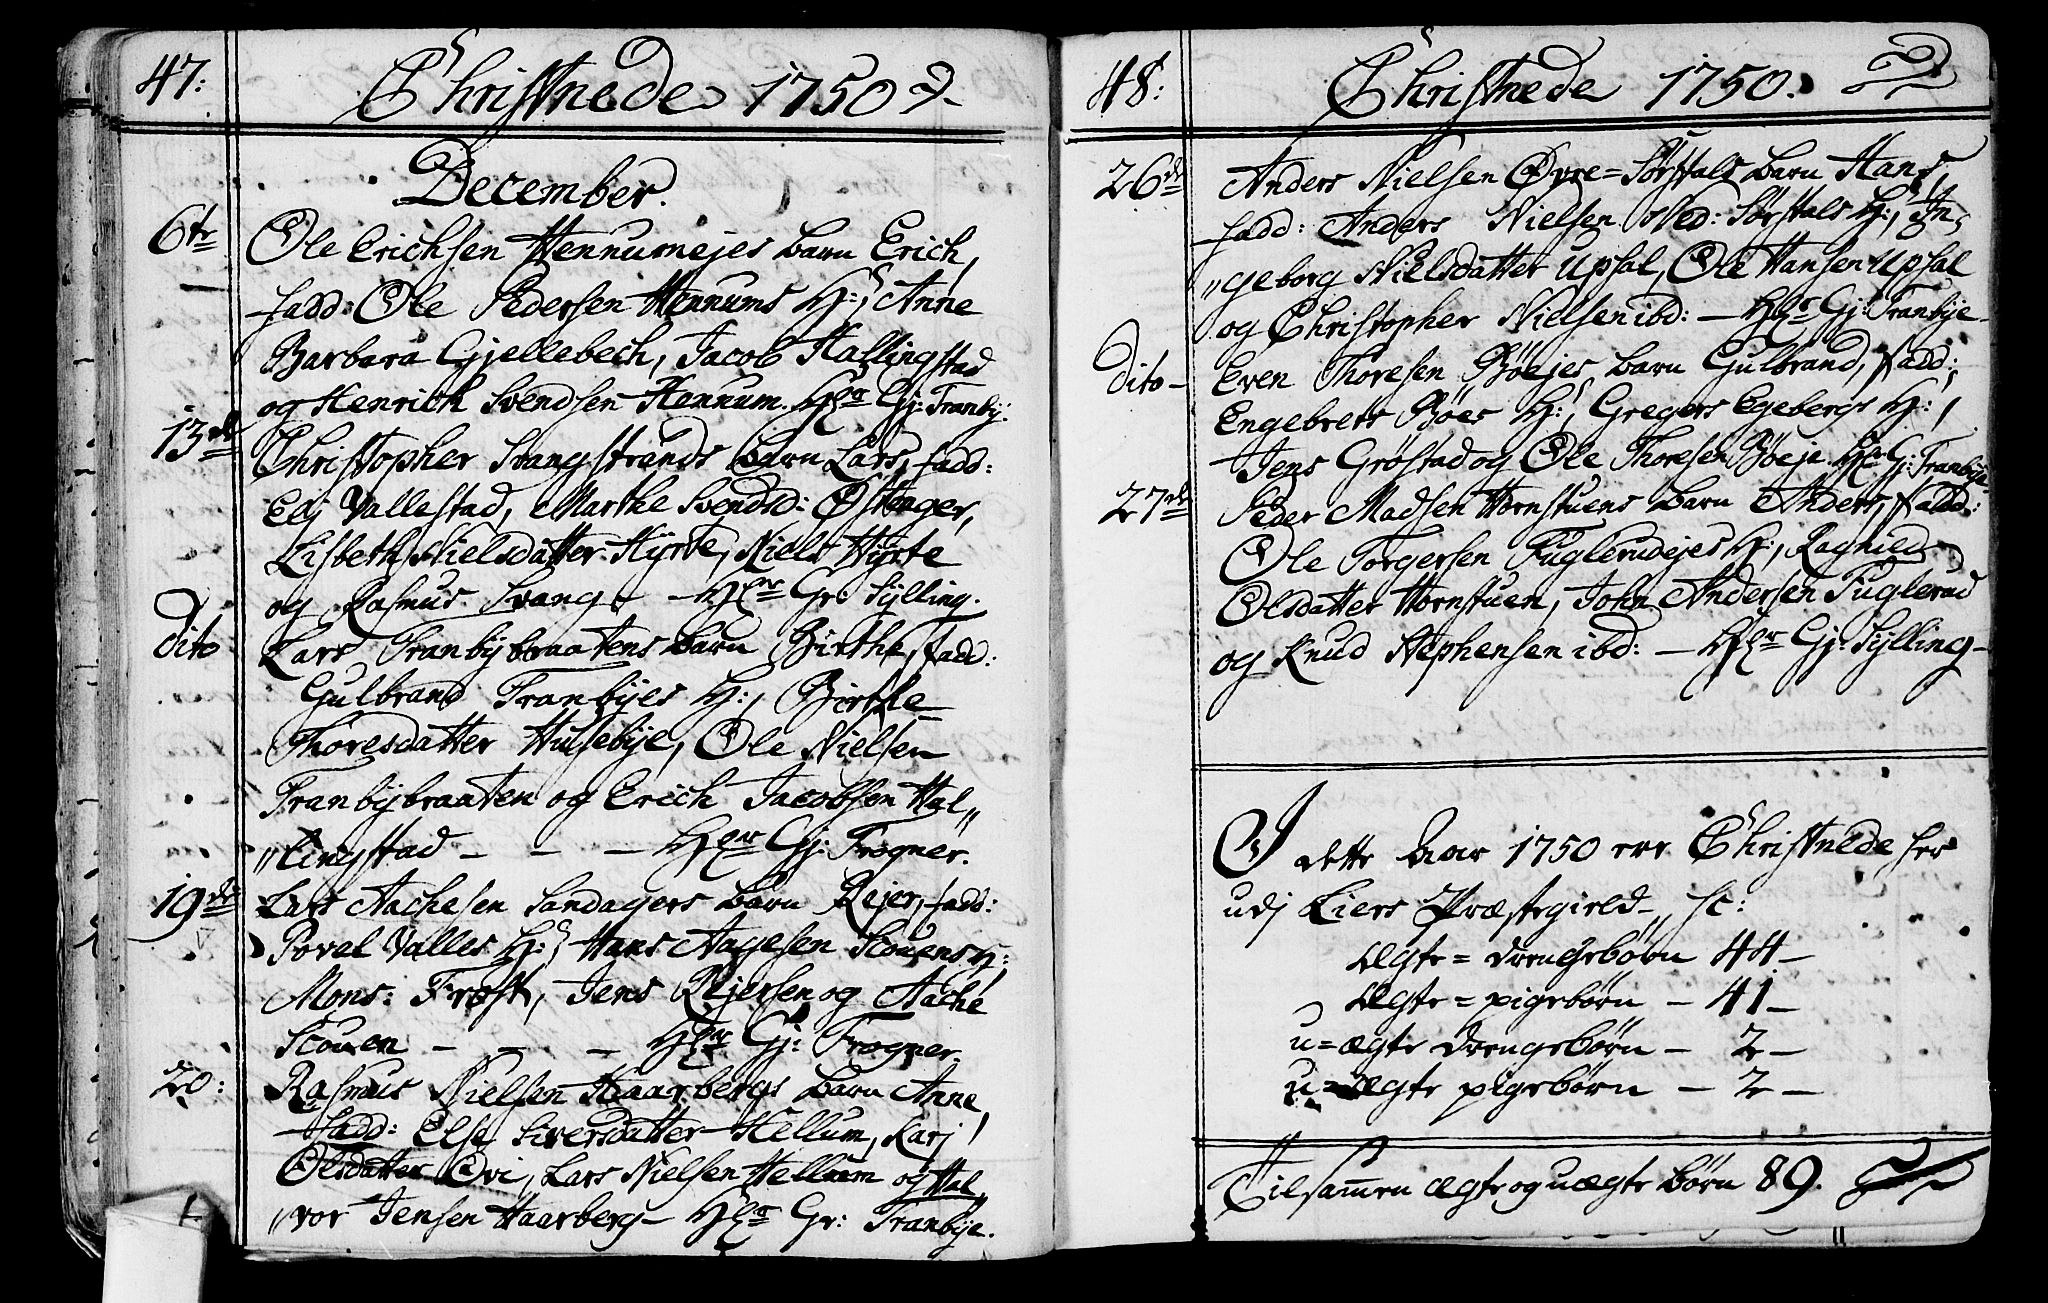 47:
Christnede 1750
December.
6te
Ole Erichsen Hennumejes barn Erich,
fadd: Ole Pedersen Hennums H:, Anne
Barbara Gjellebech, Jacob Hallingstad
og Henrich Svendsen Hennum. Gj: Tranby:
13de
Christopher Svangstrands barn Lars, fadd:
Elj Vallestad, Marthe Svendsd: Østenger,
Lisbeth Nielsdatter Hyrte, Niels Hyrte
og Rasmus Svang - Gr: Sylling.
Dito
Lars Tranbybraatens barn Birthe, fadd:
Gulbrand Tranbyes H:, Birthe
Thoresdatter Husebye, Ole Nielsen
Tranbybraaten og Erich Jacobsen Hal„
„lingstad - - - Gj: Frogner.
19de
Lars Aachesen Sandagers barn Rejer, fadd:
Povel Valles H:, Hans Aagesen Scouens H:,
Mons: Frost, Jens Rejersen og Aache
Scouen - - - Gj: Frogner.
20:
Rasmus Nielsen Haarbergs barn Anne,
fadd: Else Siversdatter Hellum, Karj
Olsdatter Ovi, Lars Nielsen Hellum og Hal„
„vor Jensen Haarberg - Gr: Tranbye.
48:
Christnede 1750.
26de
Anders Nielsen Øvre=Sørstals barn Hans,
fadd: Anders Nielsen Ned: Sørstals H:, In„
„geborg Nielsdatter Upsal, Ole Hansen Upsal
og Christopher Nielsen ibd: - Gj: Tranbye-
Dito-
Even Thoresen Bøejes barn Gulbrand, fadd:
Engebrets Bøes H:, Gregers Egebergs H:,
Jens Grøstad og Ole Thoresen Bøeje Gj: Tranbye-
27de
Peder Madsen Hornstuens barn Anders, fadd:
Ole Torgersen Fuglerudejes H:, Ragnild
Olsdatter Hornstuen, John Andersen Fuglerud
og Knud Stephensen ibd: - Gj: Sylling-
I dette Aar 1750 ere Christnede her
udj Liers Præstegield, sc:
Ægte=drengebørn 44-
Ægte=pigebørn - 41-
u=ægte drengebørn - 2-
u=ægte pigebørn - 2-
Tilsammen ægte og uægte børn 89.